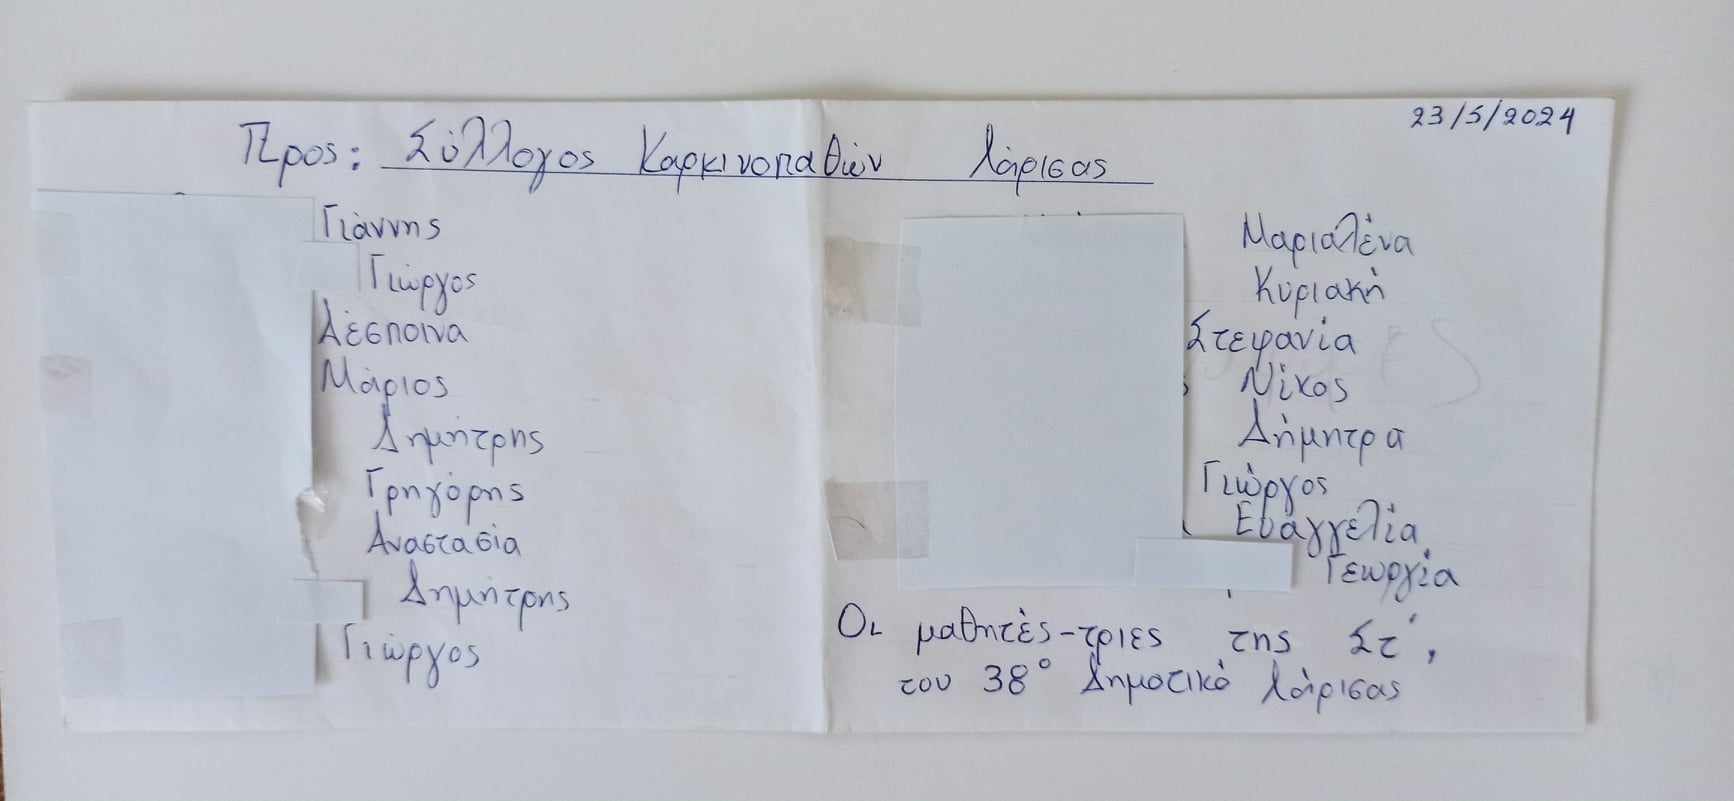 23/5/2024
Προς: Σύλλογος Καρκινοπαθών Λάρισας
Γιάννης
Γιώργος
Δέσποινα
Μάριος
Δημήτρης
Γρηγόρης
Αναστασία
Δημήτρης
Γιώργος
Μαριαλένα
Κυριακή
Στεφανία
Νίκος
Δήμητρα
Γιώργος
Ευαγγελία
Γεωργία
Οι μαθητές-τριες της Στ',
του 38° Δημοτικό Λάρισας